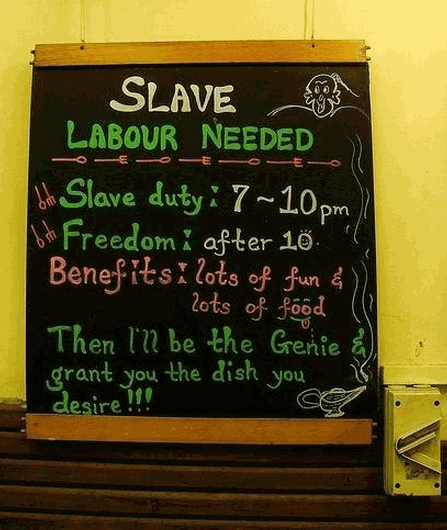 SLAVE
LABOUR NEEDED
Slave duty: 7~10pm
Freedom: after 10
Benefits: lots of fun &
lots of food
Then I'll be the Genie &
grant you the dish you
desire!!!